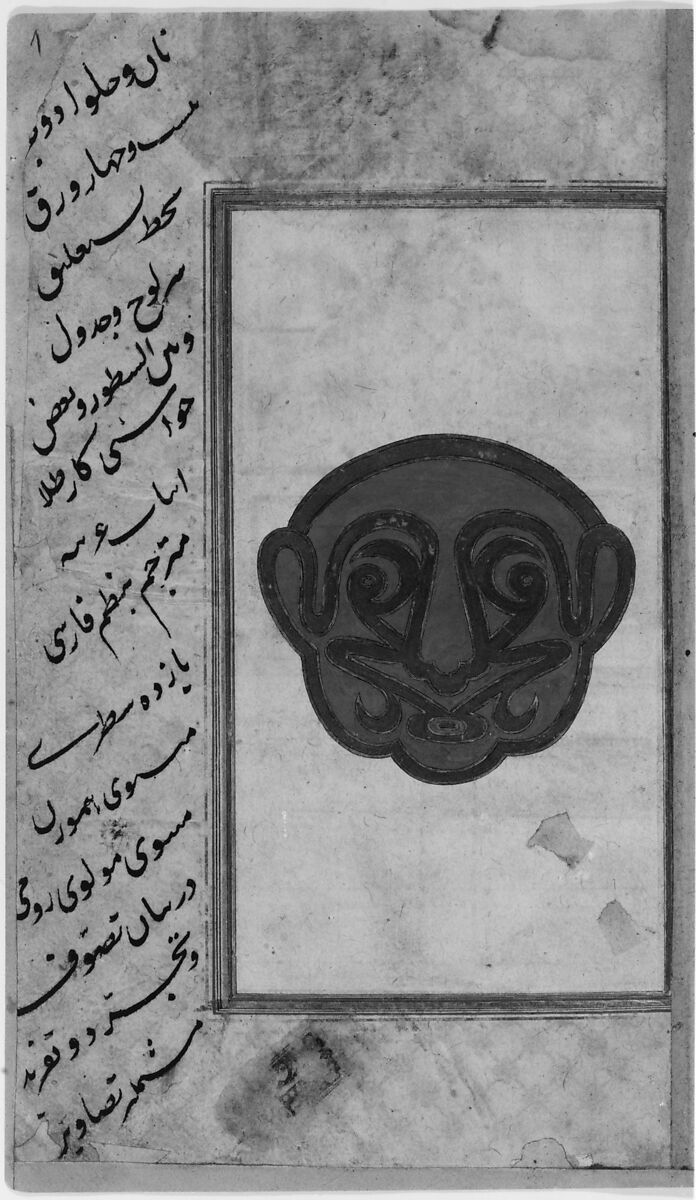 ۱
نان و حلوا دو
و چهار ورق
بخط نستعلیق
سرلوح و جدول
و بین السطور و بعض
حواشی کار طلا
ابیات عربیه
مترجم بنظم فارسی
یازده سطری
مثنوی
مثنوی مولوی رومی
در بیان تصوّف
و تجرّد و تفرّد
مشتمله تصاویر